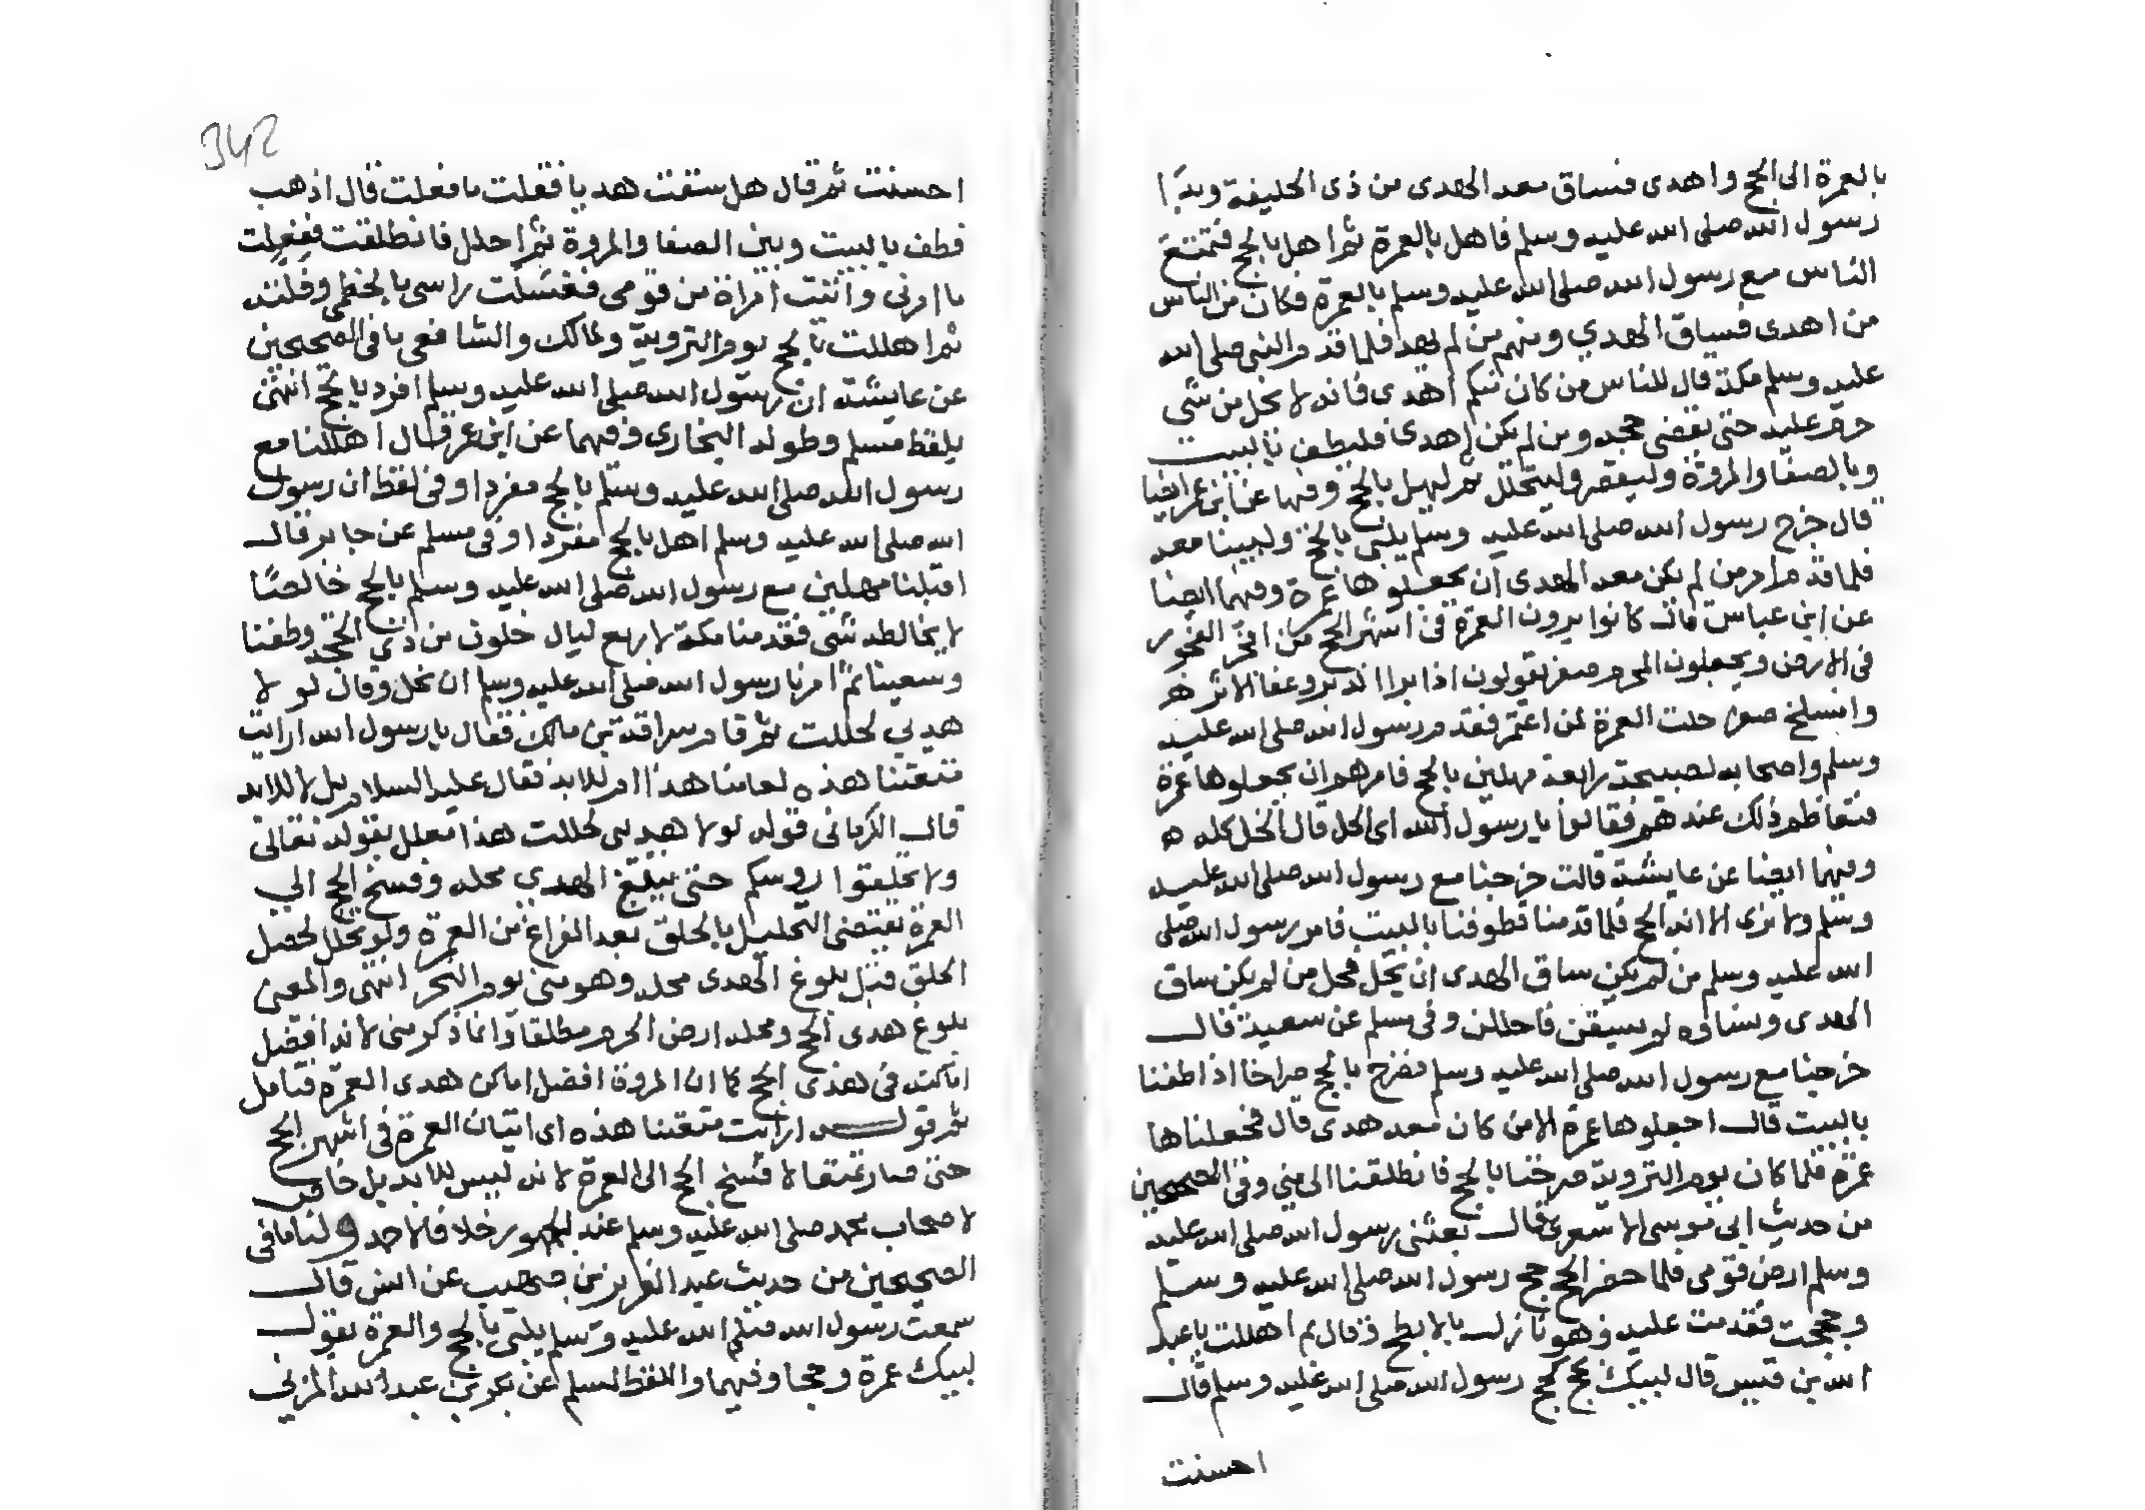 بالعمرة الى الحج واهدى فساق معه الهدى من ذى الحليفة وبدا
رسول الله صلى الله عليه وسلم فاهل بالعمرة ثم اهل بالحج فتمتع
الناس مع رسول الله صلى الله عليه وسلم بالعمرة فكان من الناس
من اهدى فساق الهدي ومنهم من لم يهد فلما قدم النبى صلى الله
عليه وسلم مكة قال للناس من كان منكم اهدى فانه لا يحل من شى
حرم عليه حتى يقضى حجه ومن لم يكن اهدى فليطف بالبيت
وبالصفا والمروة وليقصر وليتحلل ثم ليهل بالحج وفيها عن ابن عمر ايضا
قال خرج رسول الله صلى الله عليه وسلم يلبى بالحج ولبينا معه
فلما قدم امر من لم يكن معه الهدى ان يجعلوها عمرة وفيهما ايضا
عن ابن عباس قال كانوا يرون العمرة فى اشهر الحج من افجر الفجور
فى الارض ويجعلون المحرم صفر يقولون اذا برا الدبر وعفا الاثر
وانسلخ صفر حلت العمرة لمن اعتمر فقدم رسول الله صلى الله عليه
وسلم واصحابه لصبيحة رابعة مهلين بالحج فامرهم ان يجعلوها عمرة
فتعاظم ذلك عندهم فقالوا يا رسول الله اى الحل قال الحل كله ه
وفيهما ايضا عن عايشة قالت خرجنا مع رسول الله صلى الله عليه
وسلم ولا نرى الا انه الحج فلما قدمنا تطوفنا بالبيت فامر رسول الله صلى
الله عليه وسلم من لم يكن ساق الهدى ان يحل فحل من لم يكن ساق
الهدى ونساوه لم يسقن فاحللن وفى مسلم عن سعيد قال
خرجنا مع رسول الله صلى الله عليه وسلم نصرخ بالحج صراخا اذا طفنا
بالبيت قال اجعلوها عمرة الا من كان معه هدى قال فجعلناها
عمرة فلما كان يوم التروية صرخنا بالحج فانطلقنا الى منى وفى الصحيحين
من حديث ابى موسى الاشعرى قال بعثنى رسول الله صلى الله عليه
وسلم ارض قومى فلما حضر الحج حج رسول الله صلى الله عليه وسلم
وحججت فقدمت عليه وهو نازل بالابطح فقال بم اهللت يا عبد
الله بن قيس قال لبيك بحج كحج رسول الله صلى الله عليه وسلم قال
احسنت
342
احسنت ثم قال هل سقت هديا فقلت ما فعلت قال اذهب
فطف بالبيت وبين الصفا والمروة ثم احلل فانطلقت ففعلت
ما امرنى واتيت امراة من قومى فغسلت راسى بالخطمى وفلته
ثم اهللت بالحج يوم التروية ولمالك والشافعى ما فى الصحيحين
عن عايشة ان رسول الله صلى الله عليه وسلم افرد بالحج انتهى
بلفظ مسلم وطوله البخارى وفيهما عن ابن عمر قال اهللنا مع
رسول الله صلى الله عليه وسلم بالحج مفردا وفى لفظ ان رسول
الله صلى الله عليه وسلم اهل بالحج مفردا وفى مسلم عن جابر قال
اقبلنا مهلين مع رسول الله صلى الله عليه وسلم بالحج خالصا
لا يخالطه شى فقدمنا مكة لاربع ليال خلون من ذى الحجة وطفنا
وسعينا ثم امرنا رسول الله صلى الله عليه وسلم ان نحل وقال لولا
هديي لحللت ثم قام سراقة بن مالك فقال يا رسول الله ارايت
متعتنا هذه لعامنا هذا ام للابد فقال عليه السلام بل للابد
قال الكرمانى قوله لولا هديى لحللت هذا معلل بقوله تعالى
ولا تحلقوا روسكم حتى يبلغ الهدي محله وفسخ الحج الي
العمرة يقتضى التحليل بالحلق بعد الفراغ من العمرة ولو تحلل لحصل
الحلق قبل بلوغ الهدى محله وهو منى يوم النحر انتهى والمعنى
بلوغ هدى الحج ومحله ارض الحرم مطلقا وانما ذكر منى لانه افضل
اماكنه فى هدى الحج كما ان المروة افضل اماكن هدى العمرة فتامل
ثم قوله ارايت متعتنا هذه اى اتيان العمرة فى اشهر الحج
حتى صار تمتعا لا فسخ الحج الى العمرة لانه ليس للابد بل خاص
لاصحاب محمد صلى الله عليه وسلم عند الجمهور خلافا لاحمد ولنا ما فى
الصحيحين من حديث عبد العزيز بن صهيب عن انس قال
سمعت رسول الله صلى الله عليه وسلم يلبى بالحج والعمرة يقول
لبيك عمرة وحجا وفيهما واللفظ لمسلم عن بكر بن عبد الله المزني